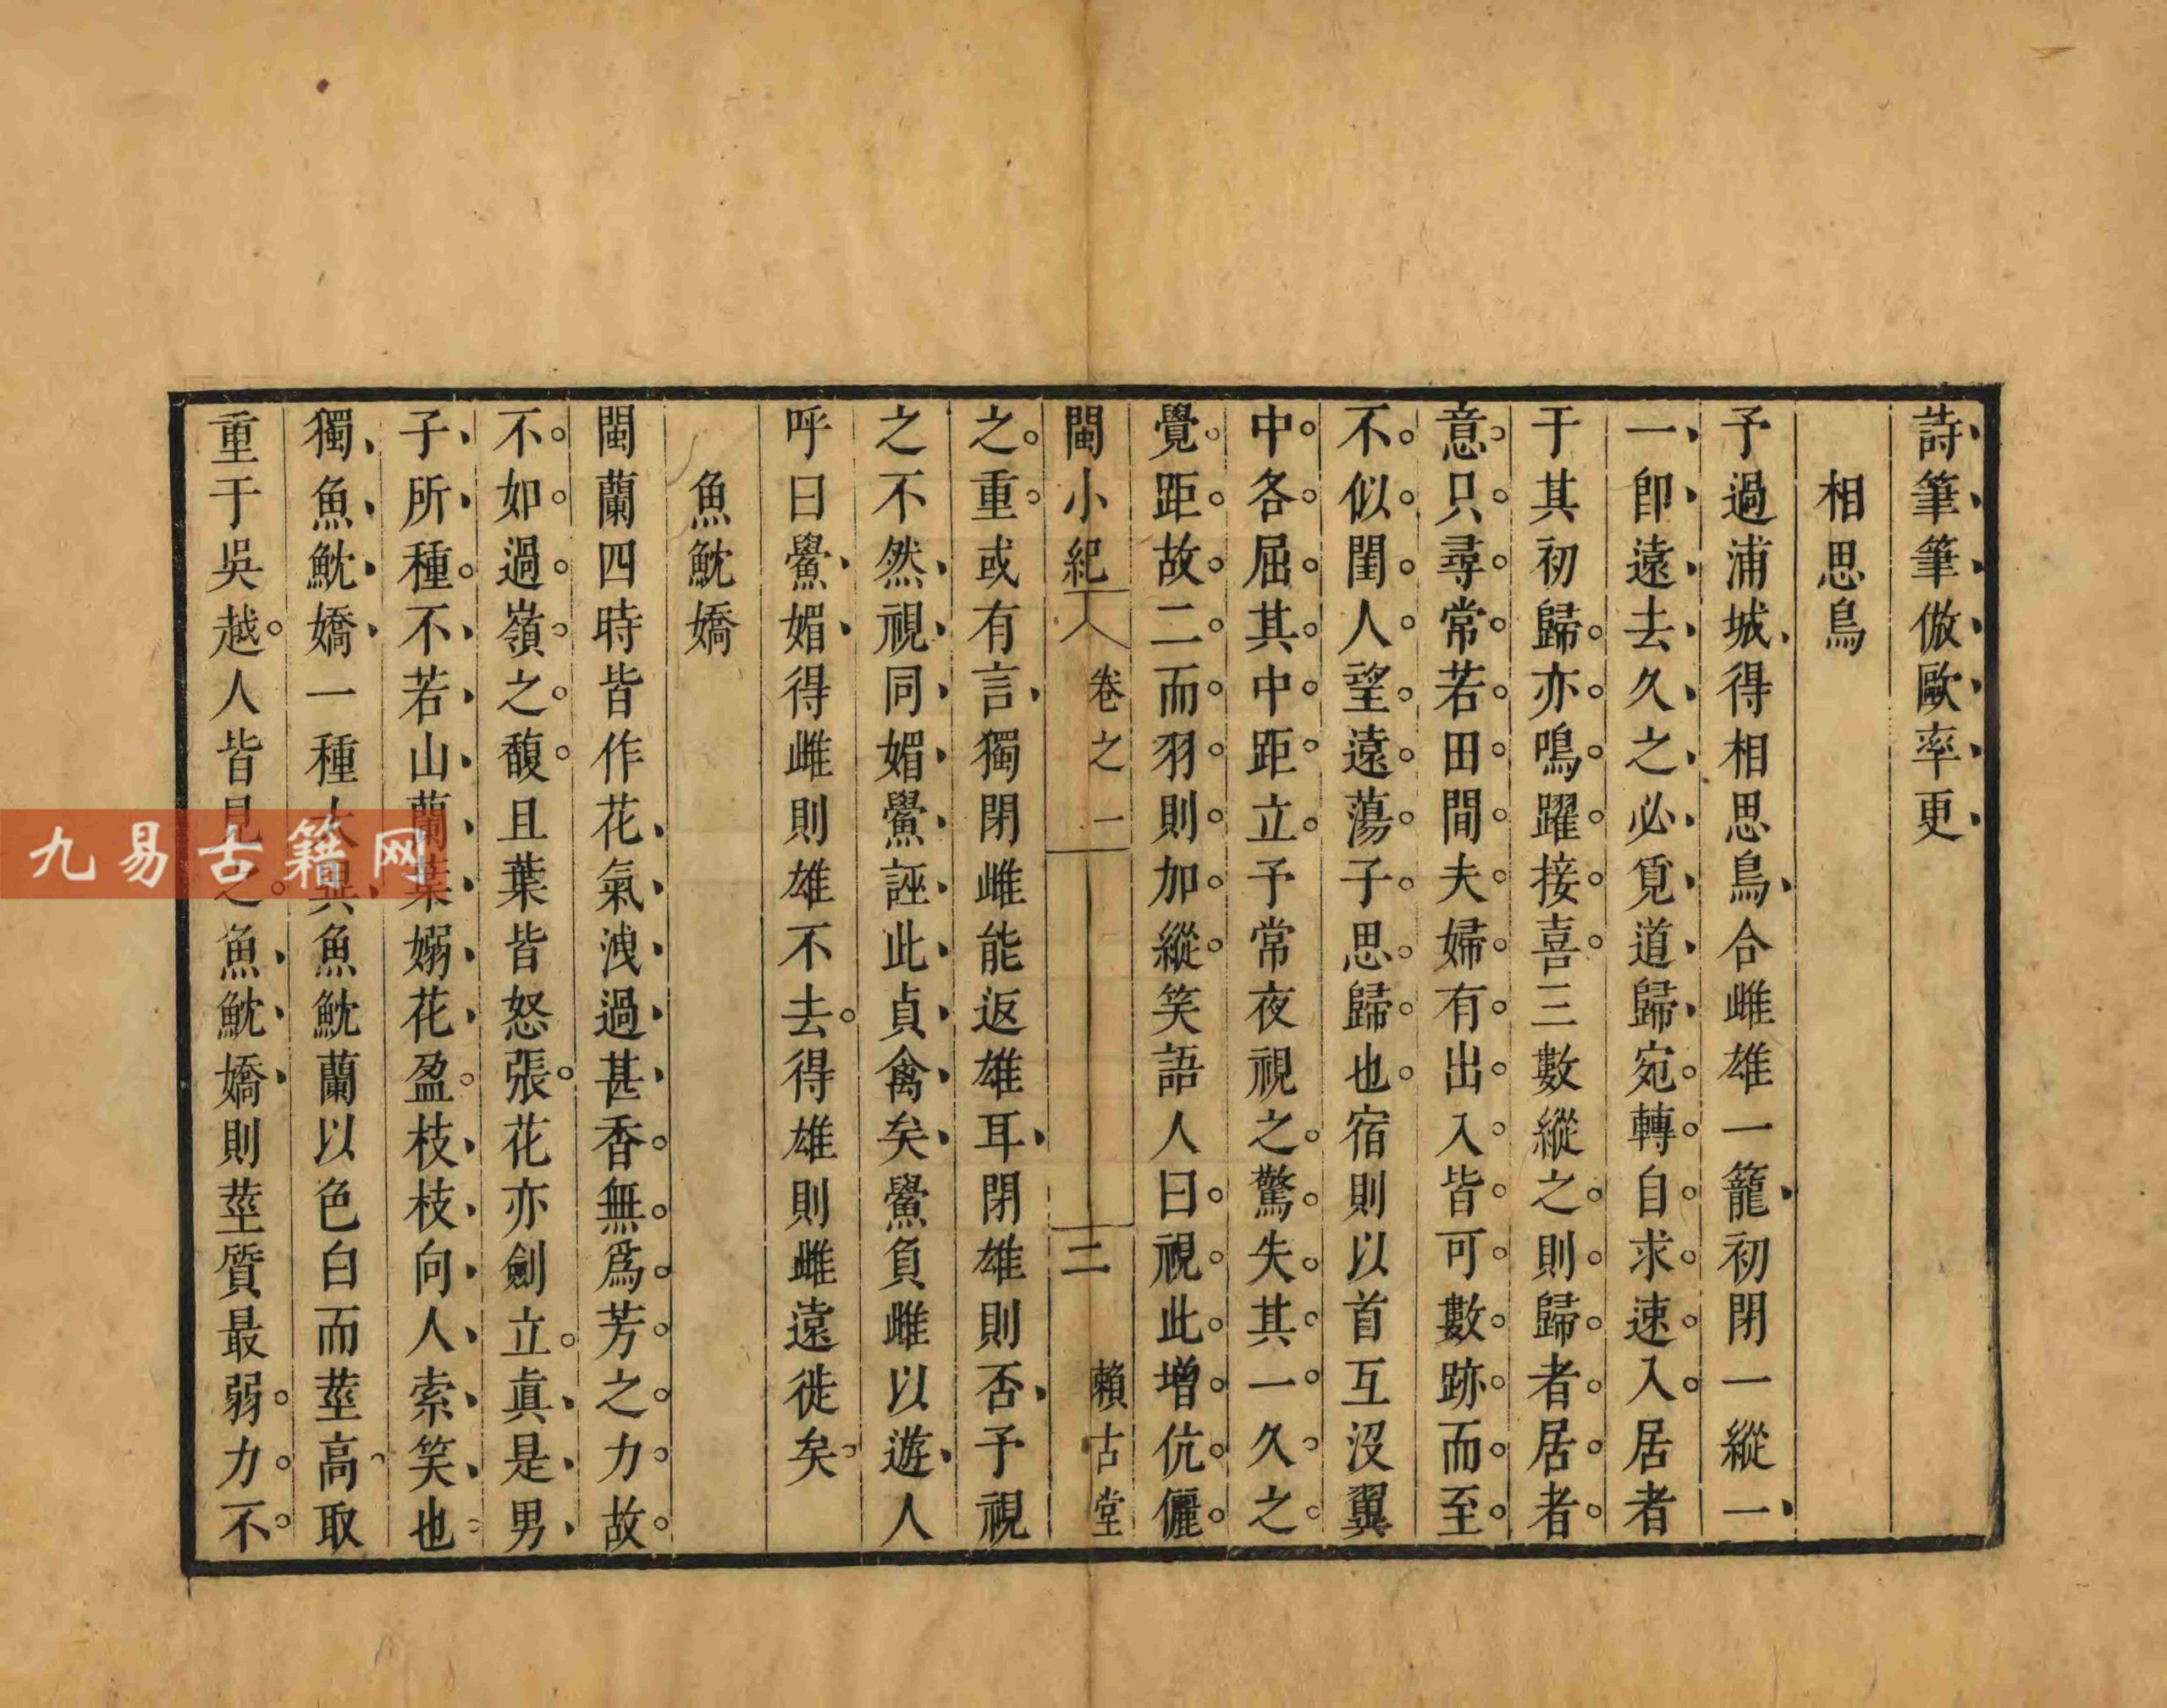 詩筆筆倣歐率更
相思鳥
予過浦城得相思鳥合雌雄一籠初閉一縱一
一卽遠去久之必覓道歸宛轉自求速入居者
于其初歸亦鳴躍接喜三數縱之則歸者居者
意只尋常若田間夫婦有出入皆可數跡而至
不似閨人望遠蕩子思歸也宿則以首互沒翼
中各屈其中距立予常夜視之驚失其一久之
覺距故二而羽則加縱笑語人曰視此增伉儷
閩小紀 卷之二 二 賴古堂
之重或有言獨閉雌能返雄耳閉雄則否予視
之不然視同媚鱟誣此貞禽矣鱟負雌以遊人
呼曰鱟媚得雌則雄不去得雄則雌遠徙矣
魚魫嬌
閩蘭四時皆作花氣洩過甚香無爲芳之力故
不如過嶺之馥且葉皆怒張花亦劍立眞是男
子所種不若山蘭葉嫋花盈枝枝向人索笑也
獨魚魫嬌一種大異魚魫蘭以色白而莖高取
重于吳越人皆見之魚魫嬌則莖質最弱力不
九易古籍网